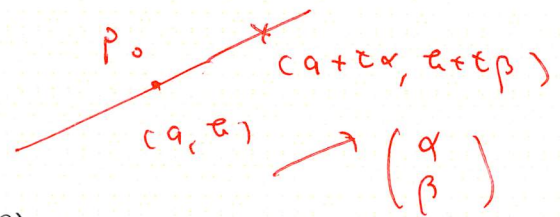 P₀
(a+tα, b+tβ)
(a, b)
(α
β)